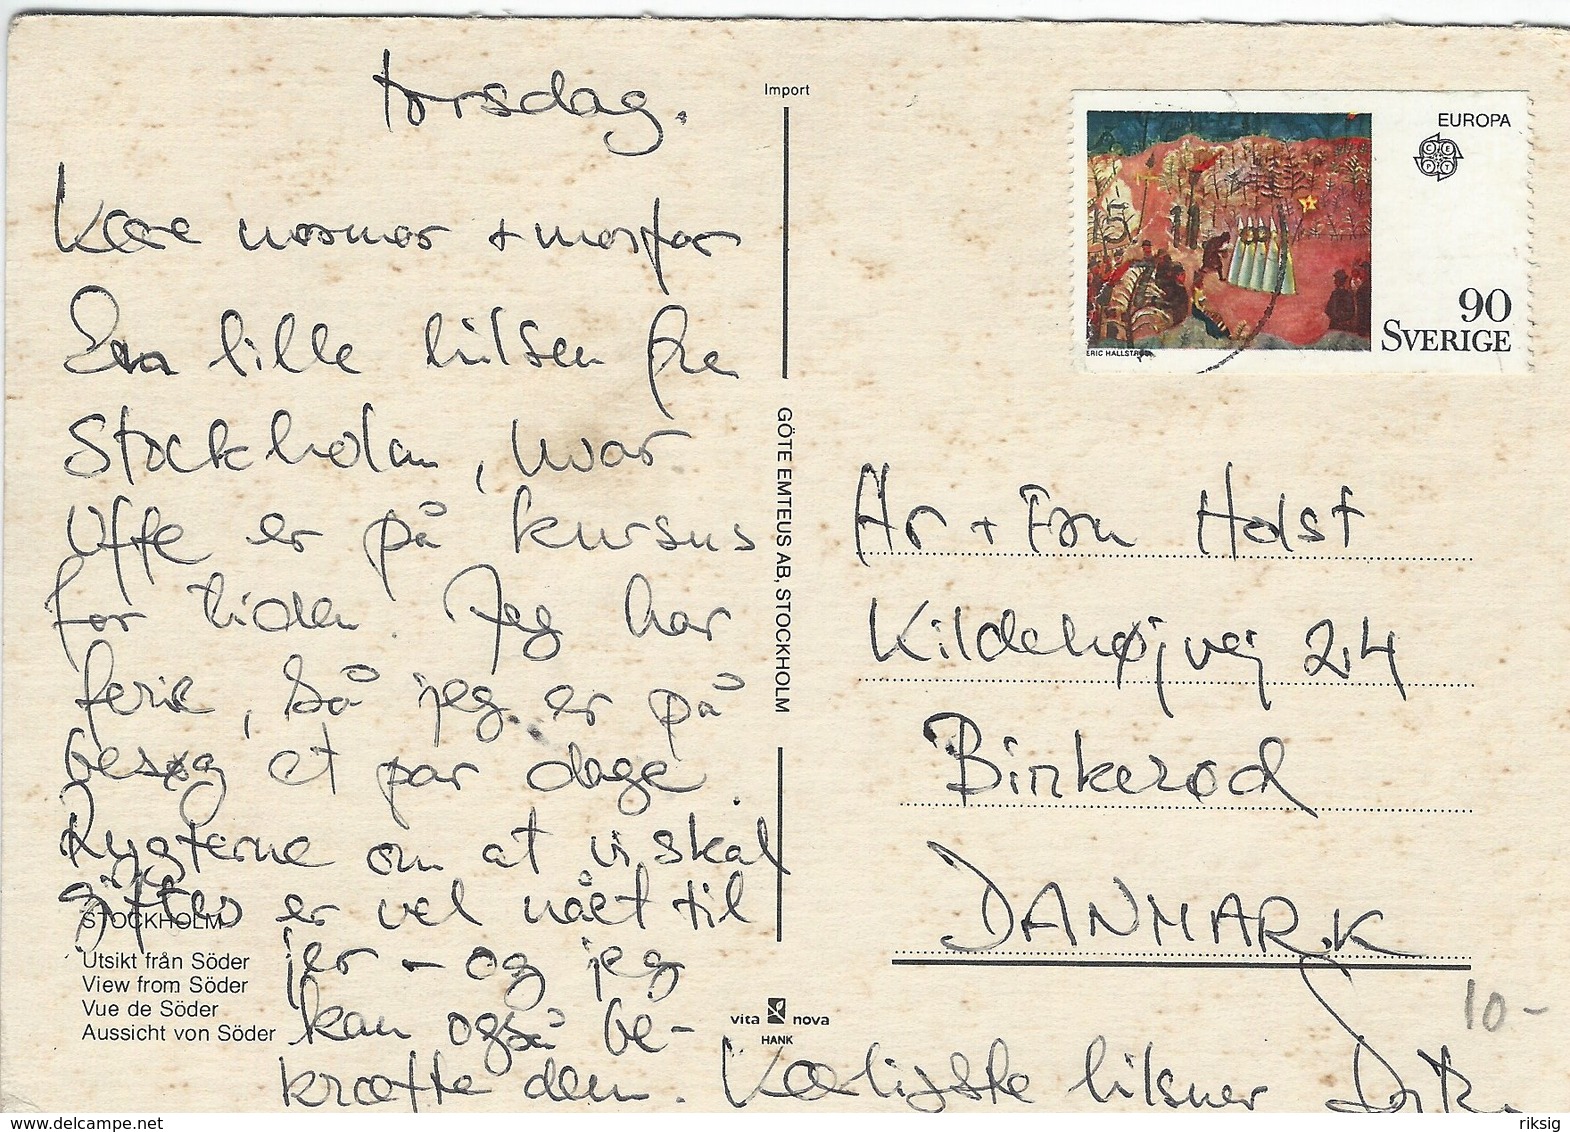 torsdag.
Kære mormor + morfar
En lille hilsen fra
Stockholm, hvor
Uffe er på kursus
for tiden. Jeg har
ferie, så jeg er på
besøg et par dage.
Rygterne om at vi skal
giftes er vel nået til
jer - og jeg
kan også be-
kræfte dem. Kærligste hilsner
STOCKHOLM
Utsikt från Söder
View from Söder
Vue de Söder
Aussicht von Söder
Import
GÖTE EMTEUS AB, STOCKHOLM
vita nova
HANK
EUROPA
CEPT
90
SVERIGE
ERIC HALLSTRÖM
Hr + Fru Holst
Kildehøjvej 24
Birkerød
DANMARK
10-
riksig